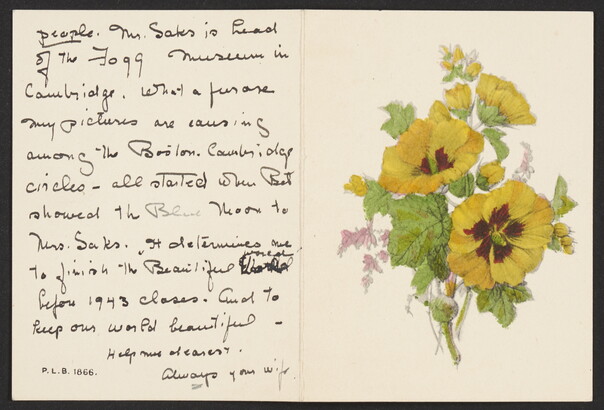 people. Mr. Saks is head
of the Fogg Museum in
Cambridge. What a furore
my pictures are causing
among the Boston. Cambridge
circles - all started when Bet
showed the Blue Moon to
Mrs. Saks. It determines me
to finish the Beautiful World
before 1943 closes. And to
keep our world beautiful -
Help me dearest.
Always your wife
P.L.B. 1866.